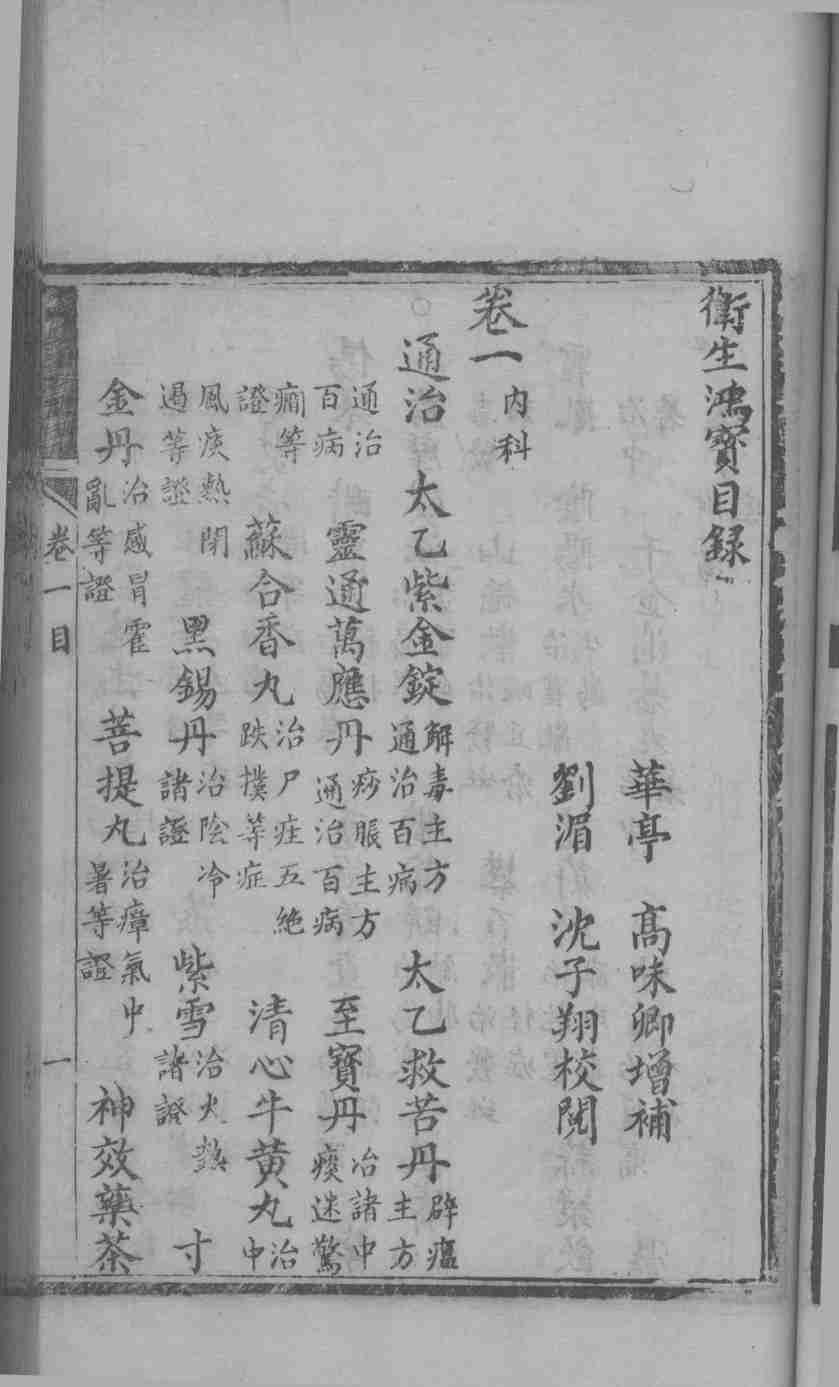 衛生鴻寶目録
華亭　高味卿增補
劉湄　沈子翔校閱
卷一 內科
通治　太乙紫金錠 解毒主方通治百病　太乙救苦丹 辟瘟主方
通治百病　靈通萬應丹 痧脹主方通治百病　至寶丹 治諸中痰迷驚
癎等證　蘇合香丸 治尸疰五絶跌撲等症　清心牛黄丸 治中
風痰熱閉遏等證　黑錫丹 治陰冷諸證　紫雪 治火熱諸證　寸
金丹 治感冒霍亂等證　菩提丸 治瘴氣中暑等證　神效藥茶
卷一目　一